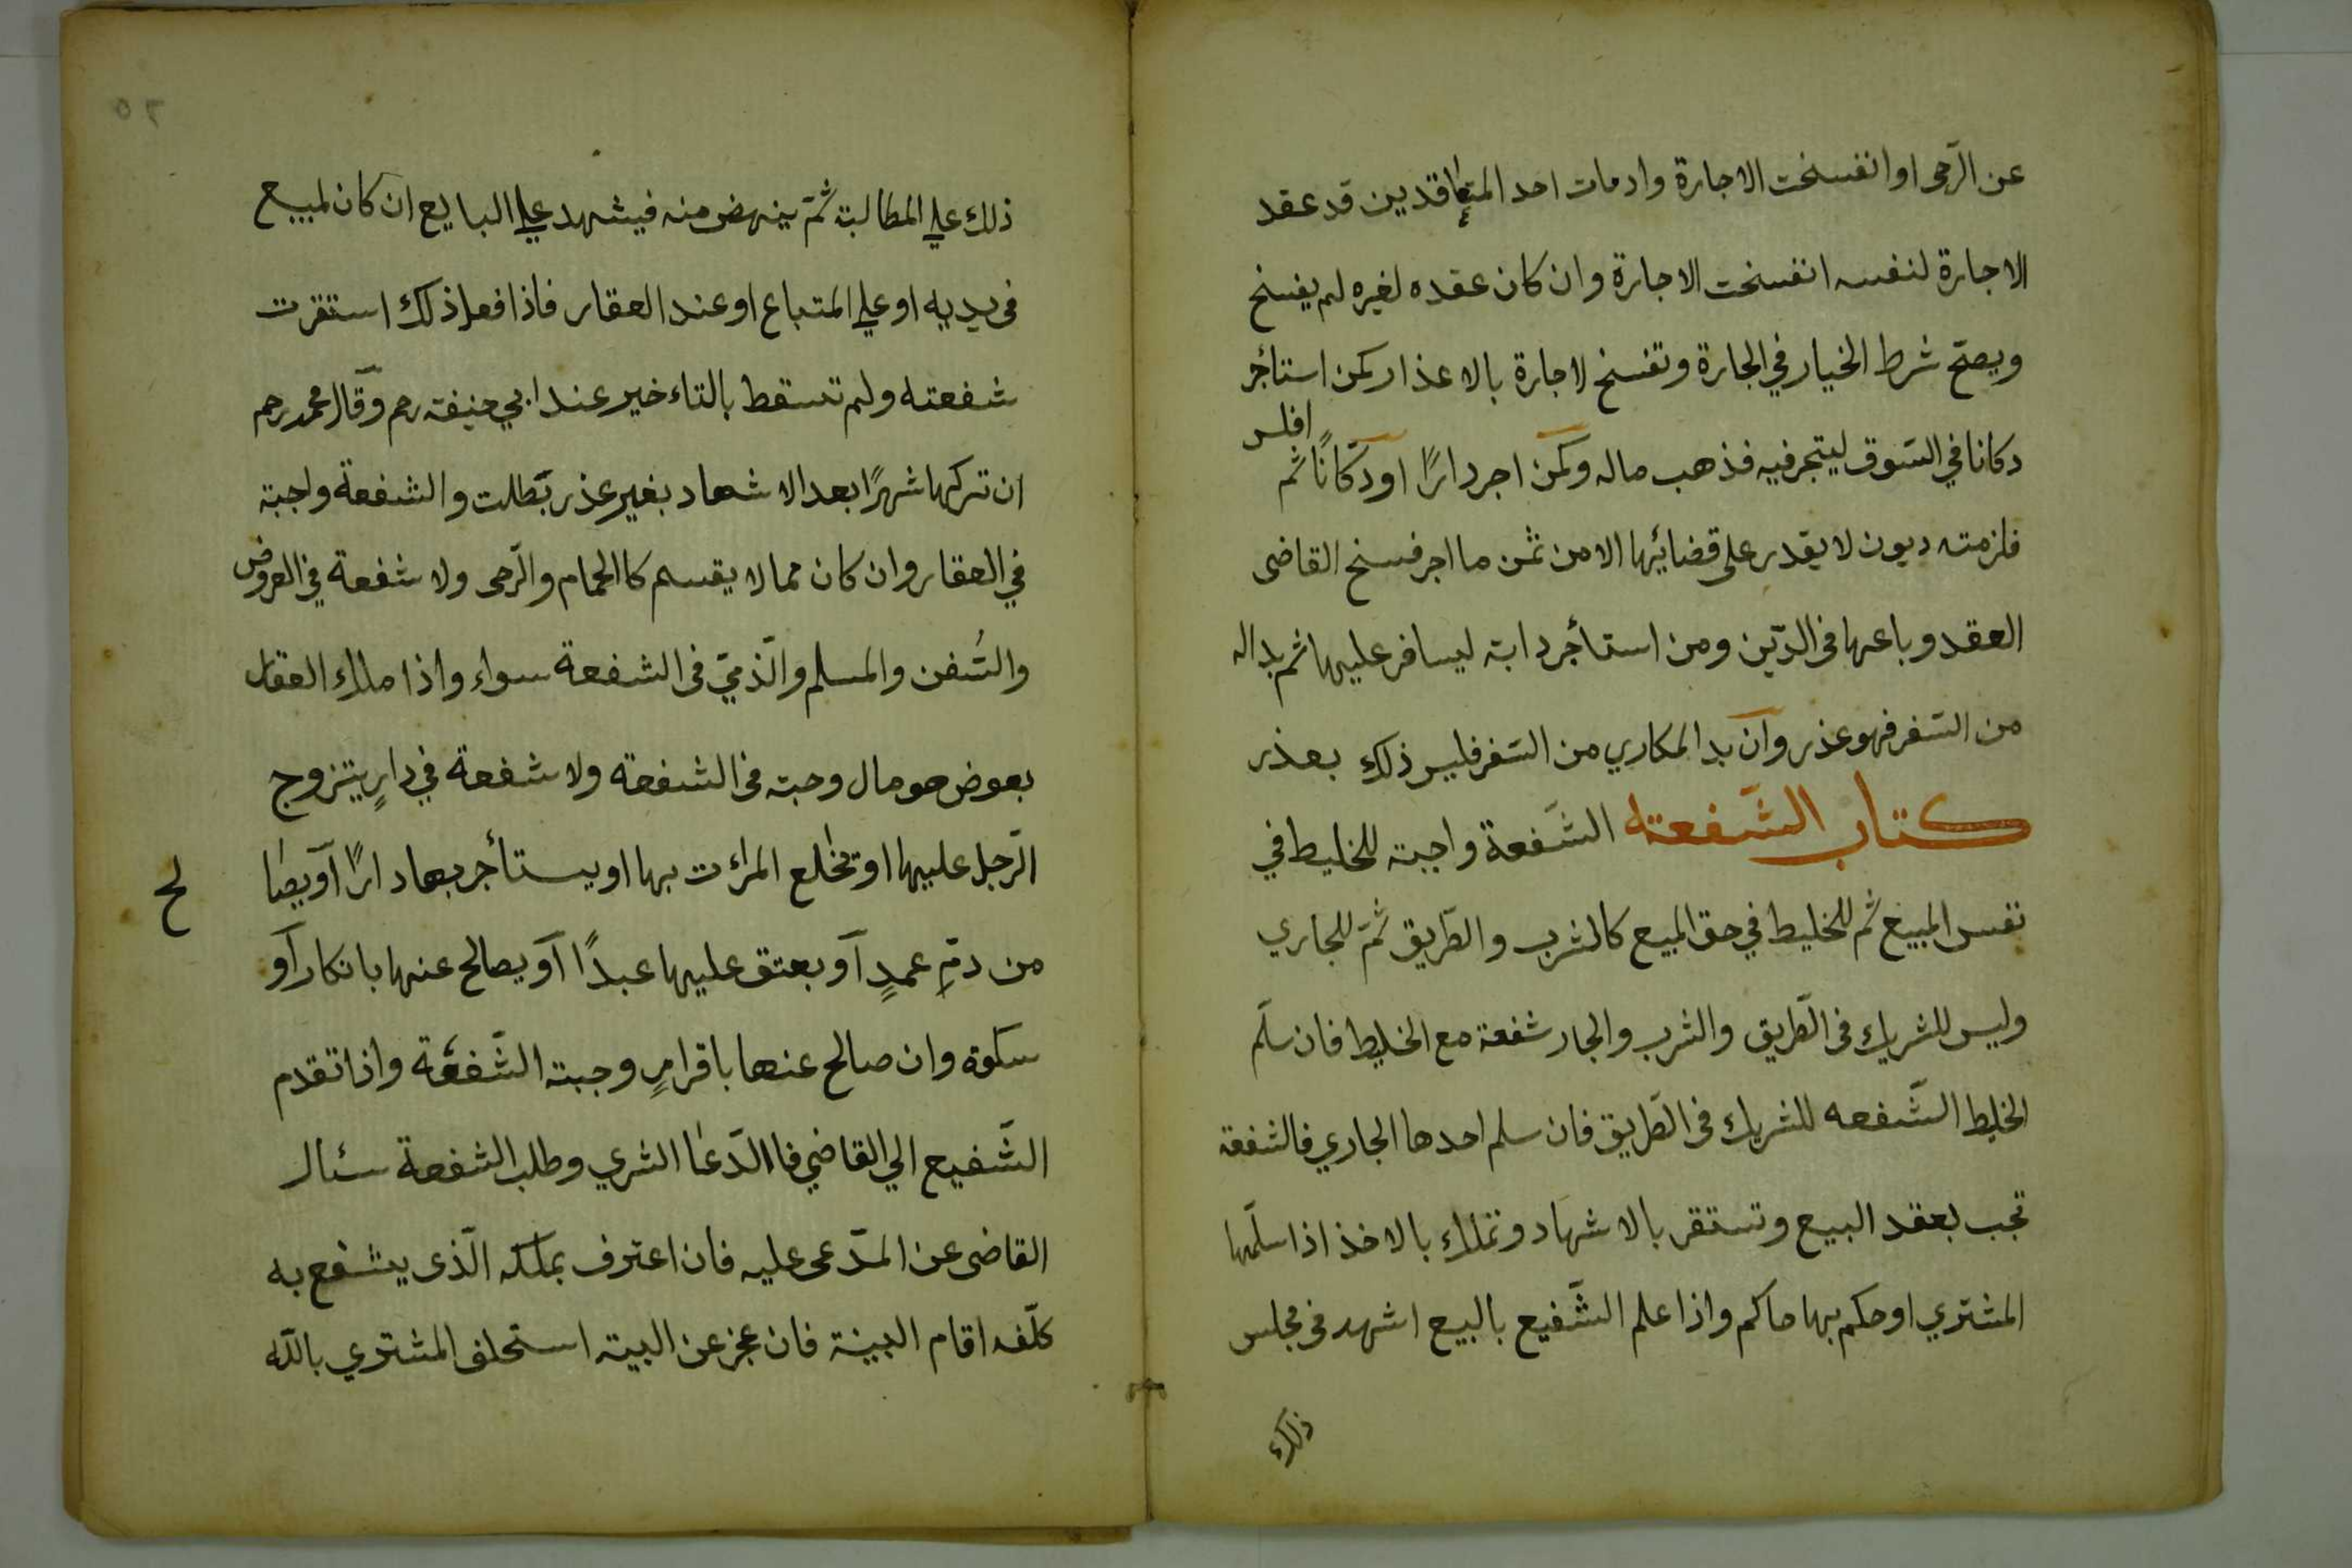 عن الرّحى او انفسخت الاجارة واذ مات احد المتعاقدين قد عقد
الاجارة لنفسه انفسخت الاجارة وان كان عقده لغيره لم يفسخ
ويصحّ شرط الخيار في الجارة وتفسخ لاجارة بالاعذار كمن استأجر
دكانا في السّوق ليتجر فيه فذهب ماله وكمن اجر دارًا او دكّانًا ثم افلس
فلزمته ديون لا يقدر على قضائيها الا من ثمن ما اجر فسخ القاضى
العقد وباعها فى الدّين ومن استأجر دابة ليسافر عليها ثم بداله
من السّفر فهو عذر وان بدا المكاري من السّفر فليس ذلك بعذر
كتاب الشّفعة الشّفعة واجبة للخليط في
نفس المبيع ثم للخليط في حق المبيع كالشرب والطّريق ثمّ للجاري
وليس للشريك فى الطّريق والشرب والجار شفعة مع الخليط فان سلّم
الخليط الشّفعه للشريك فى الطّريق فان سلم احدها الجاري فالشفعة
تجب بعقد البيع وتستقر بالاشهاد وتملك بالاخذ اذا سلّمها
المشتري او حكم بها حاكم واذا علم الشّفيع بالبيع اشهد فى مجلس
ذلك
٥٢
ذلك علي المطالبة ثمّ ينهض منه فيشهد علي البايع ان كان لمبيع
فى يديه او علي المتباع او عند العقار فاذا فعل ذلك استقرت
شفعته ولم تسقط بالتاءخير عند ابي حنيفة رحم وقال محمد رحم
ان تركها شهرًا بعد الاشهاد بغير عذر بطلت والشفعة واجبة
في العقار وان كان مما لا يقسم كاالحمام والرّحى ولا شفعة في العروض
والسُفن والمسلم والّذميّ فى الشفعة سواء واذا ملك العقار
بعوض هو مال وجبة فى الشفعة ولا شفعة في دارٍ يتزوج
الرّجل عليها او تخلع المرات بها او يستأجر بها دارًا او يصا
لح
من دمِ عمدٍ او بعتق عليها عبدًا او يصالح عنها بانكار او
سكوة وان صالح عنها باقرارٍ وجبة الشّفعة واذا تقدم
الشّفيع الي القاضي فاالدّعا الشري وطلب الشفعة سئال
القاضى عن المدّعى عليه فان اعترف بملكه الّذى يشفع به
كلّفه اقام البينة فان عجز عن البينة استحلف المشتري بالله